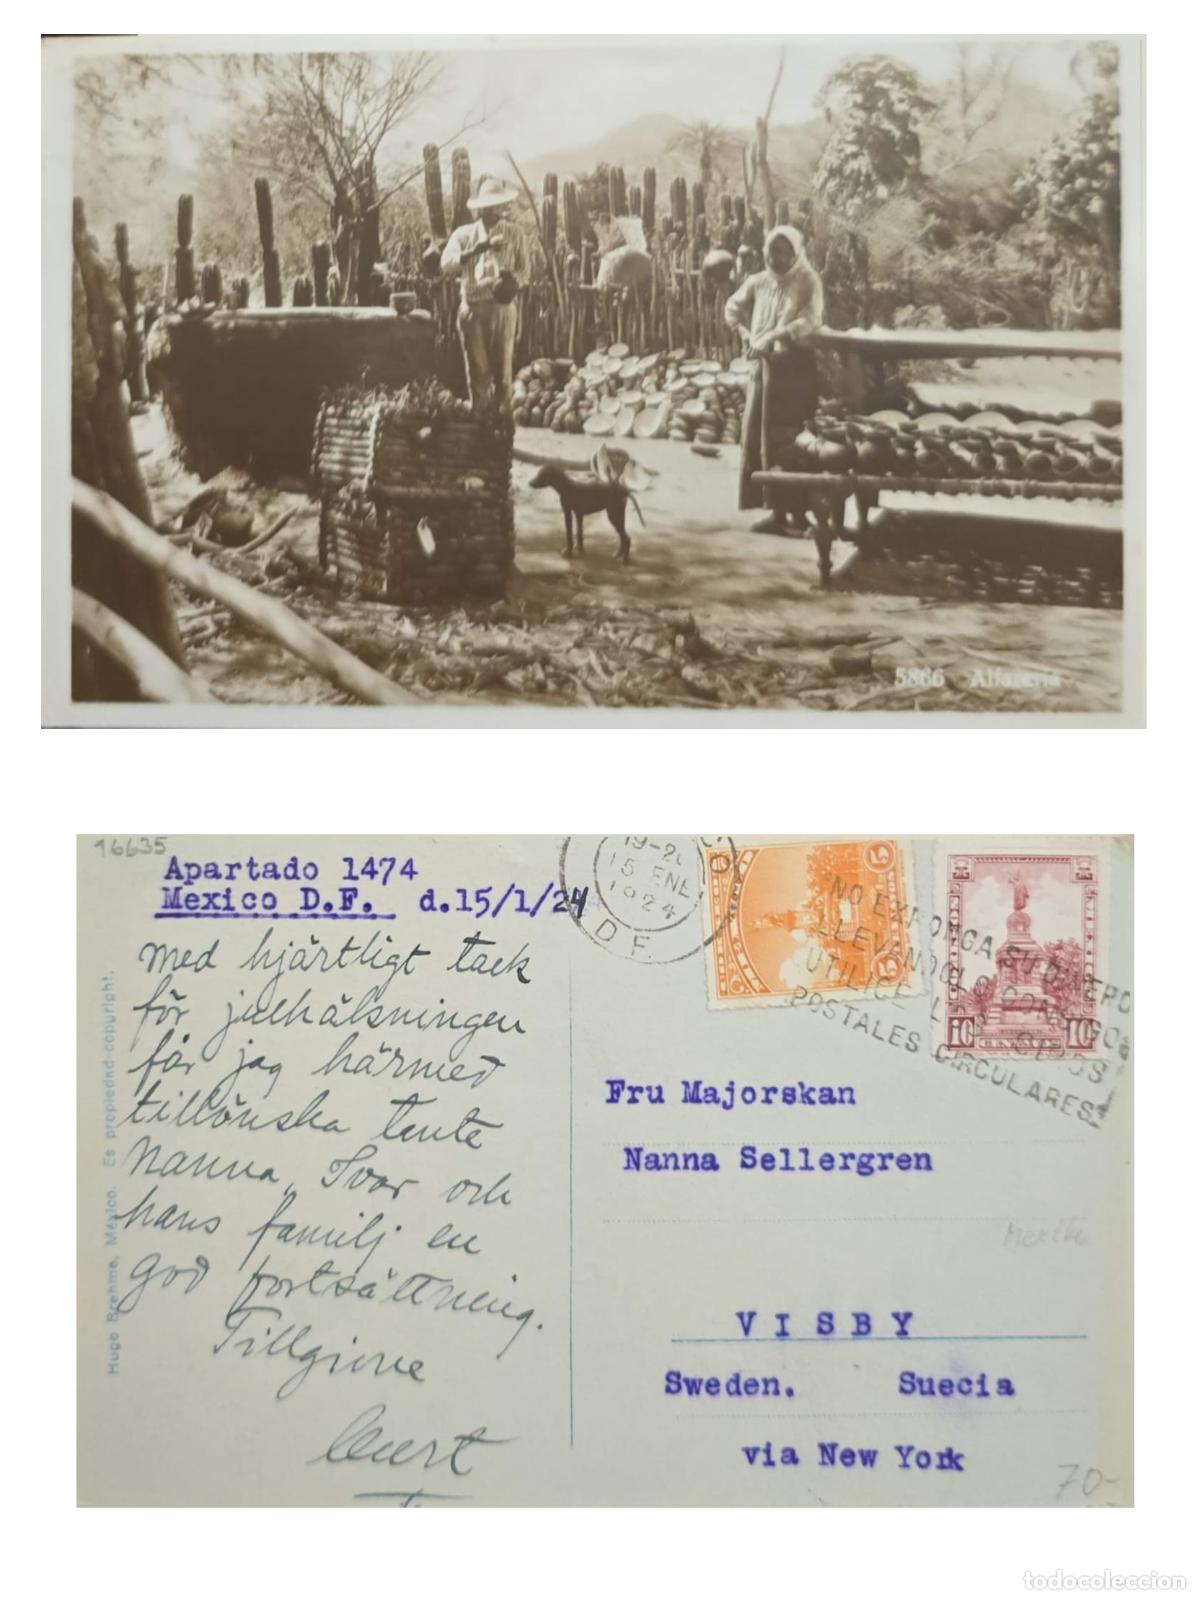 5866 Alfareria
16635
Apartado 1474
Mexico D.F. d.15/1/24
19-2
15 ENE
1924
D.F.
NO EXPONGA SU DINERO
LLEVANDOLO CONSIGO
UTILICE LOS GIROS
POSTALES CIRCULARES
15
15
10 10
CENTAVOS
med hjärtligt tack
för julhälsningen
får jag härmed
tillönska tante
Nanna, Ivar och
hans familj en
god fortsättning.
Tillgivne
Curt
Hugo Brehme, México. Es propiedad-copyright.
Fru Majorskan
Nanna Sellergren
VISBY
Sweden. Suecia
via New York
70-
todocoleccion